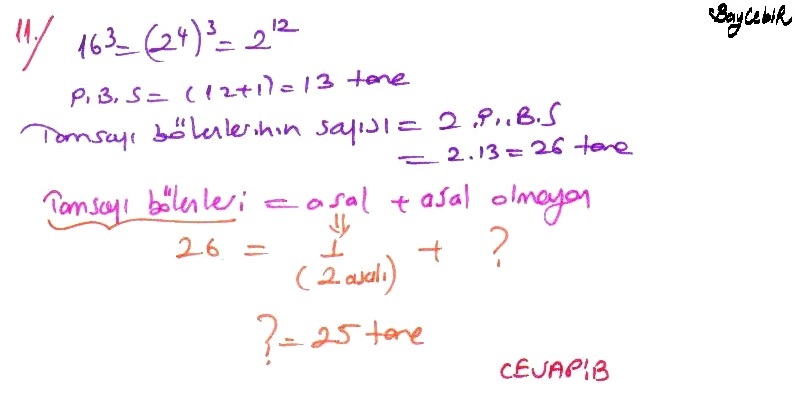 BayCebiR
11./ 16³ = (2⁴)³ = 2¹²
P.B.S = (12+1) = 13 tane
Tamsayı bölenlerinin sayısı = 2.P.B.S
= 2.13 = 26 tane
Tamsayı bölenleri = asal + asal olmayan
⇓
26 = 1 + ?
(2 asalı)
? = 25 tane
CEVAP:B